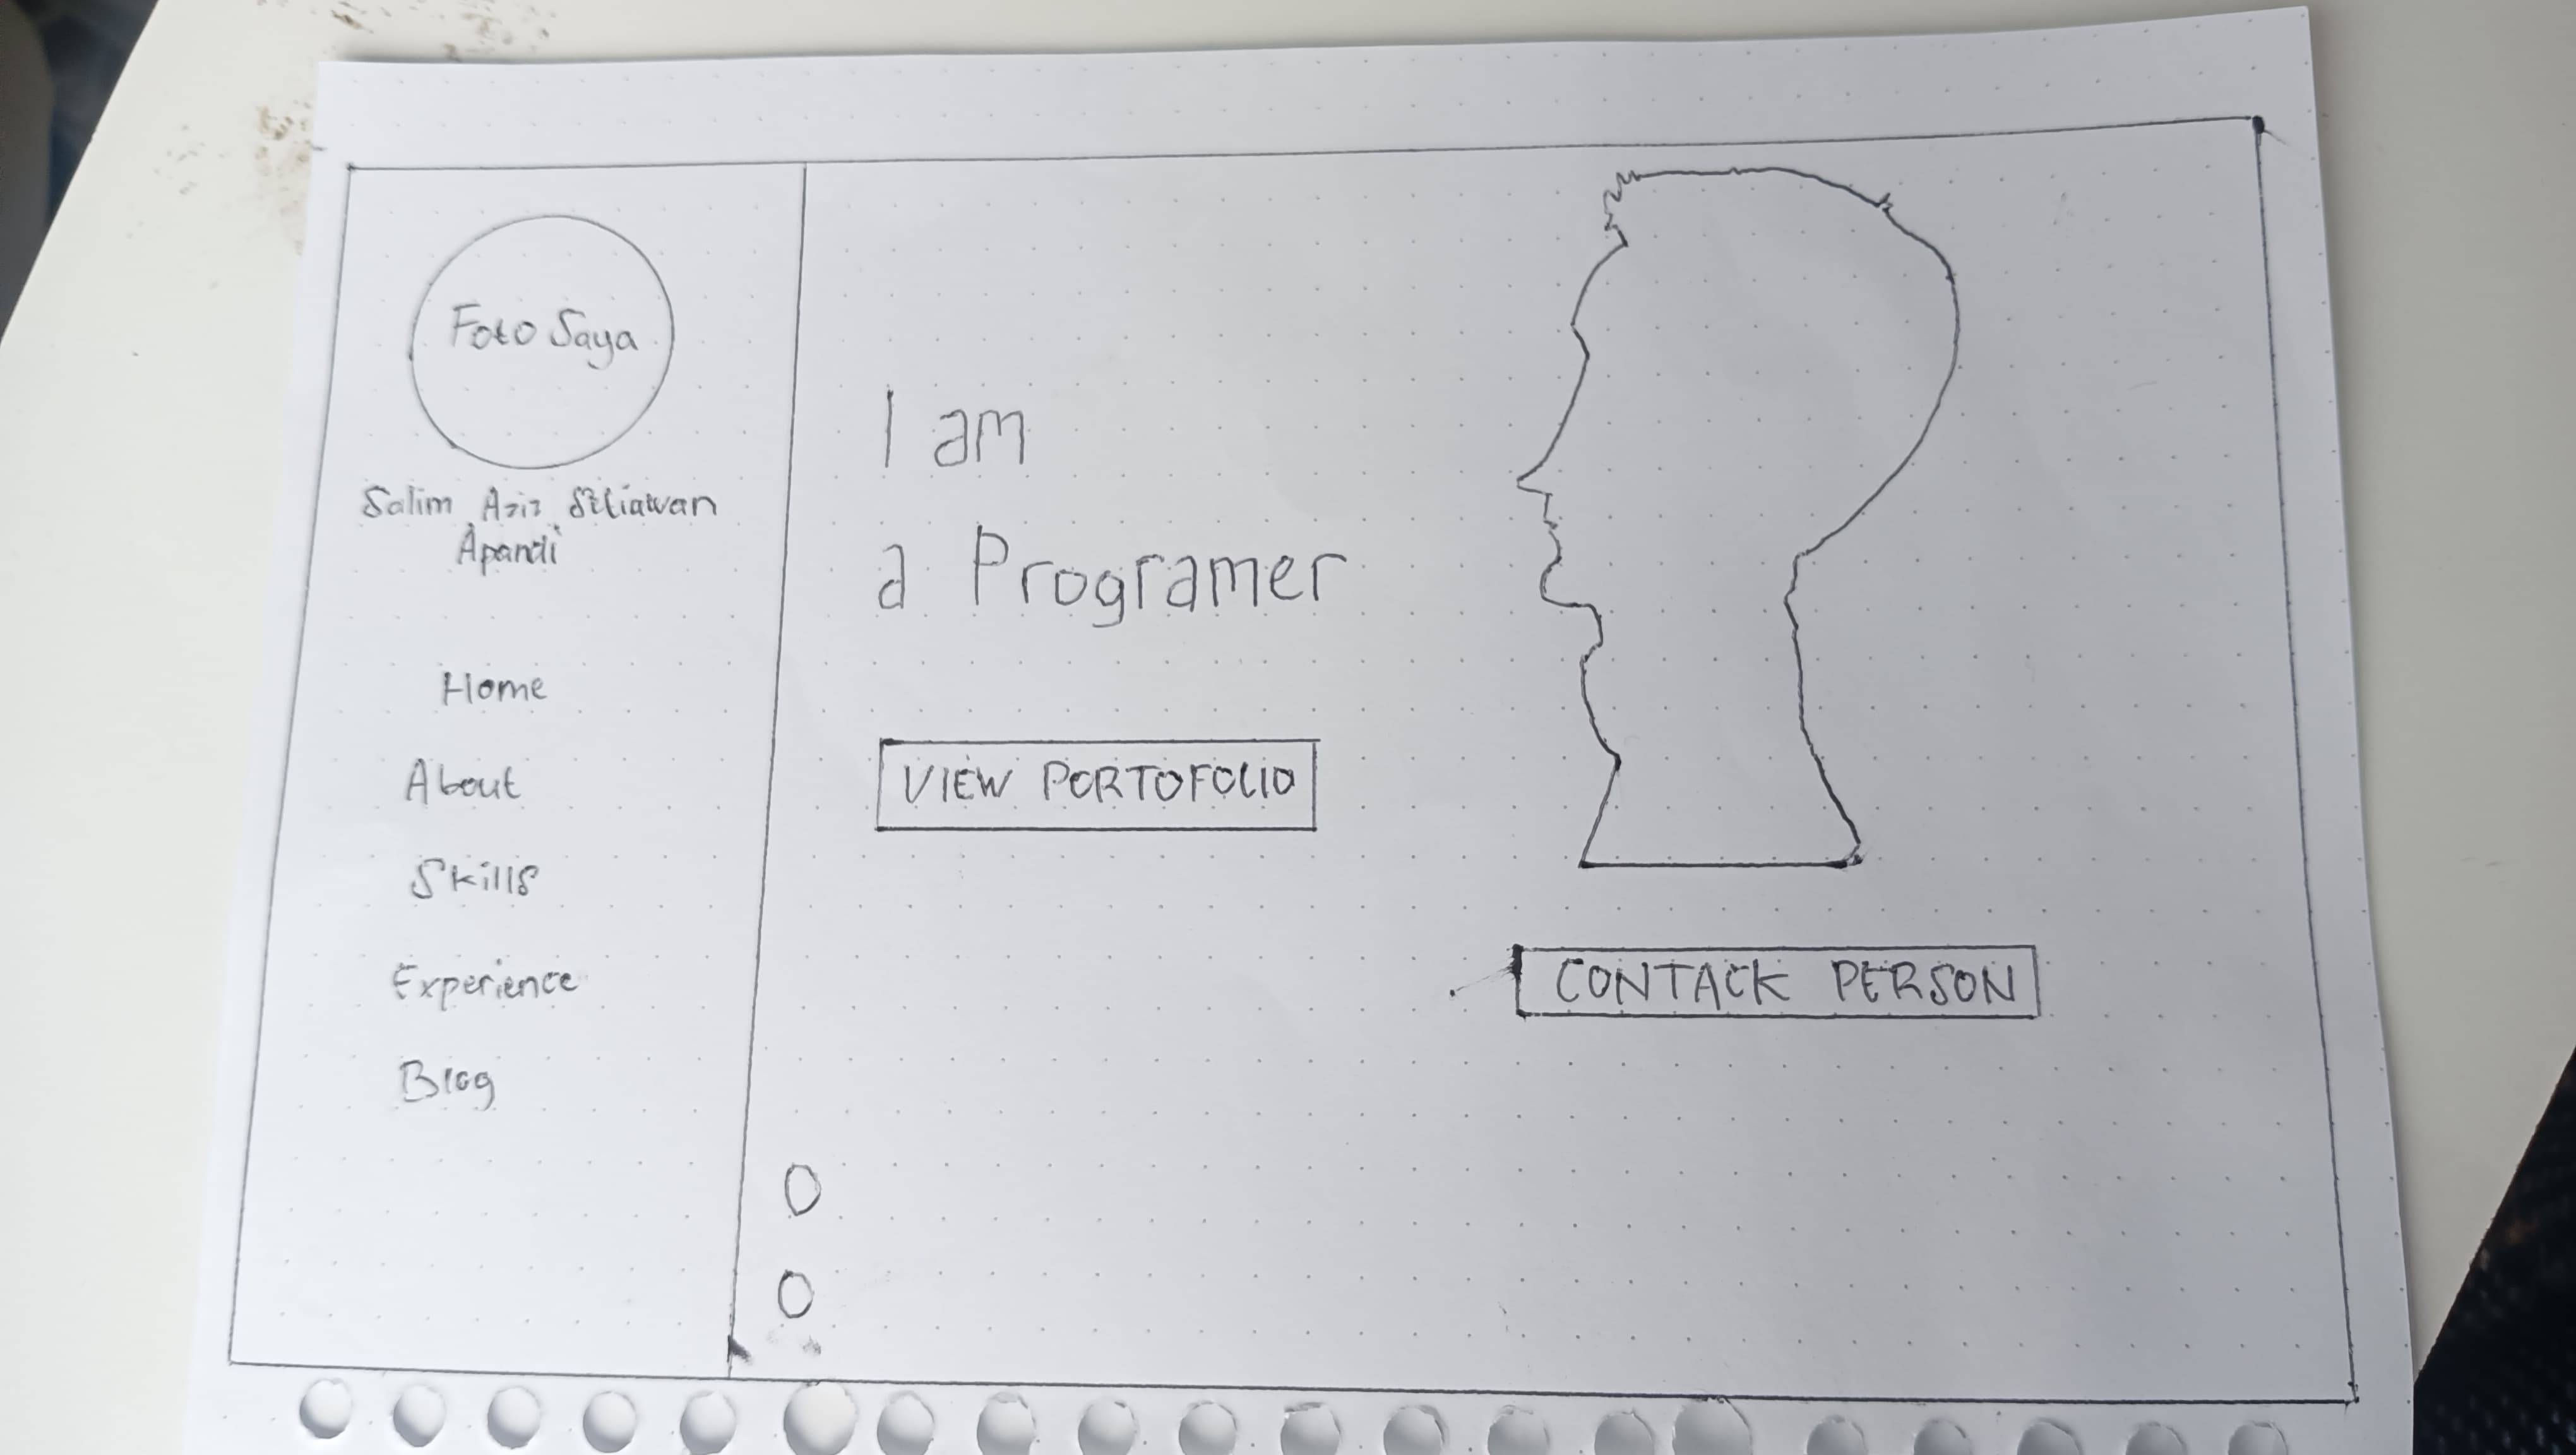 Foto Saya
Salim Aziz Setiawan
Apandi
Home
About
Skills
Experience
Blog
I am
a Programer
VIEW PORTOFOLIO
CONTACK PERSON